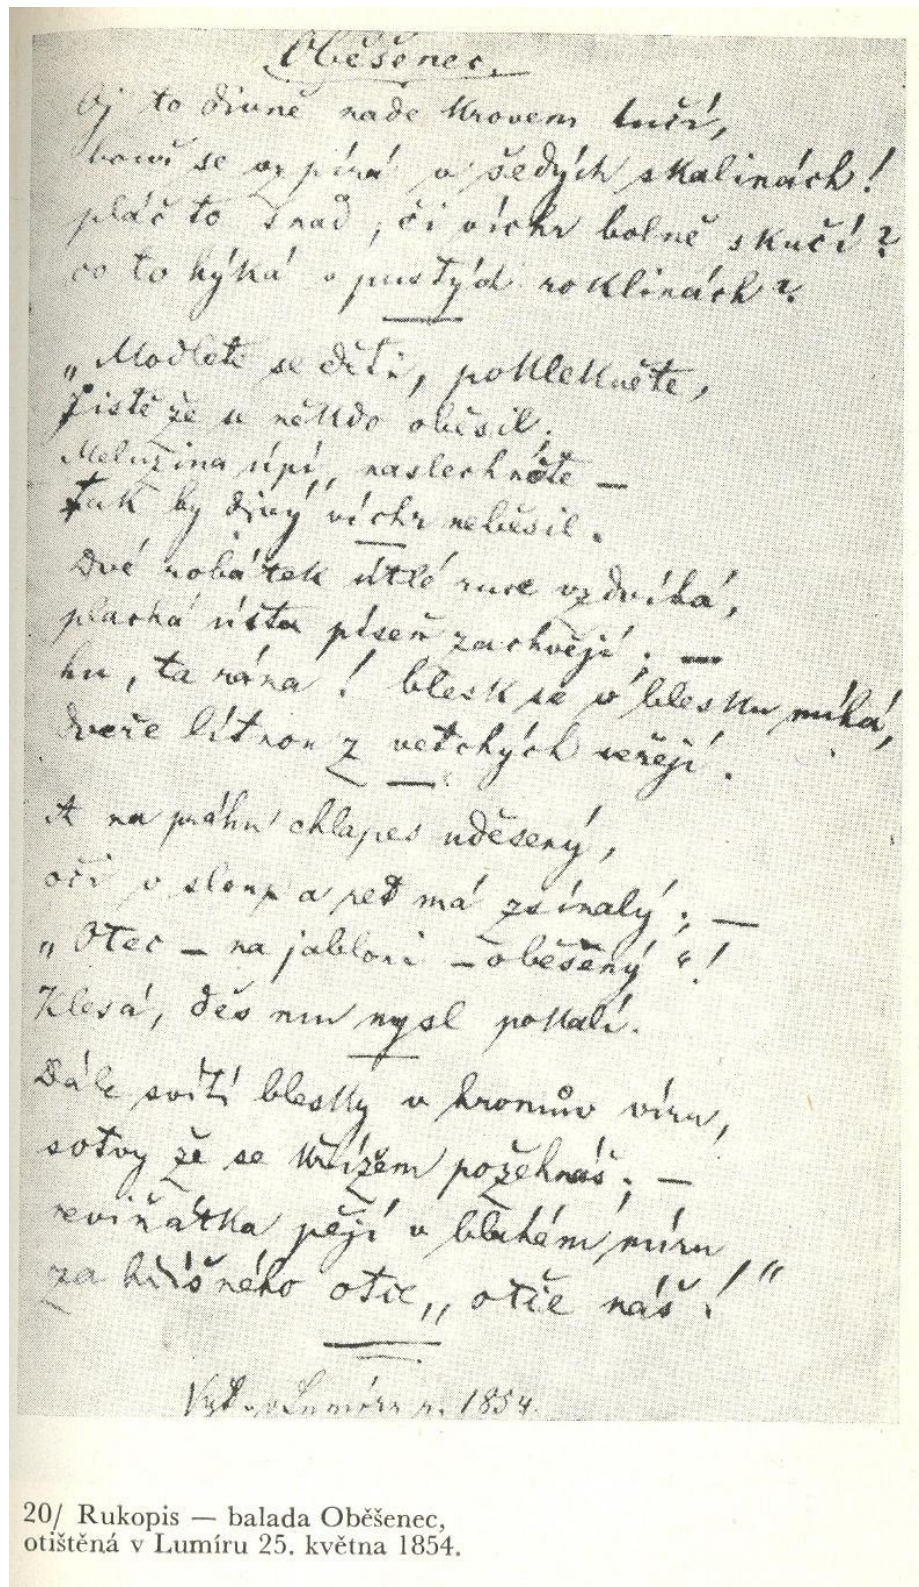 Oběšenec.
Oj to divně nade krovem hučí,
bouř se vzpírá v šedých skalinách!
pláč to snad, či víchr bolně skučí?
co to hýká v pustých roklinách?
„Modlete se děti, poklekněte,
jistě že se někdo oběsil;
Meluzina úpí, naslechněte —
tak by divý víchr neběsil.
Dvé robátek útlé ruce vzdvíhá,
plachá ústa píseň zachvějí; —
hu, ta rána! blesk se v blesku míhá,
dveře lítnou z vetchých veřejí.
A na práhu chlapes uděsený,
oči v sloup a ret má zsínalý; —
„Otec — na jabloni — oběšený“!
Klesá, děs mu mysl pokalí.
Dále svítí blesky v hromův víru,
sotvy že se křížem požehnáš; —
neviňátka pějí v blahém míru
za hříšného otce „otče náš!“
Vyd. v Lumíru r. 1854.
20/ Rukopis — balada Oběšenec,
otištěná v Lumíru 25. května 1854.